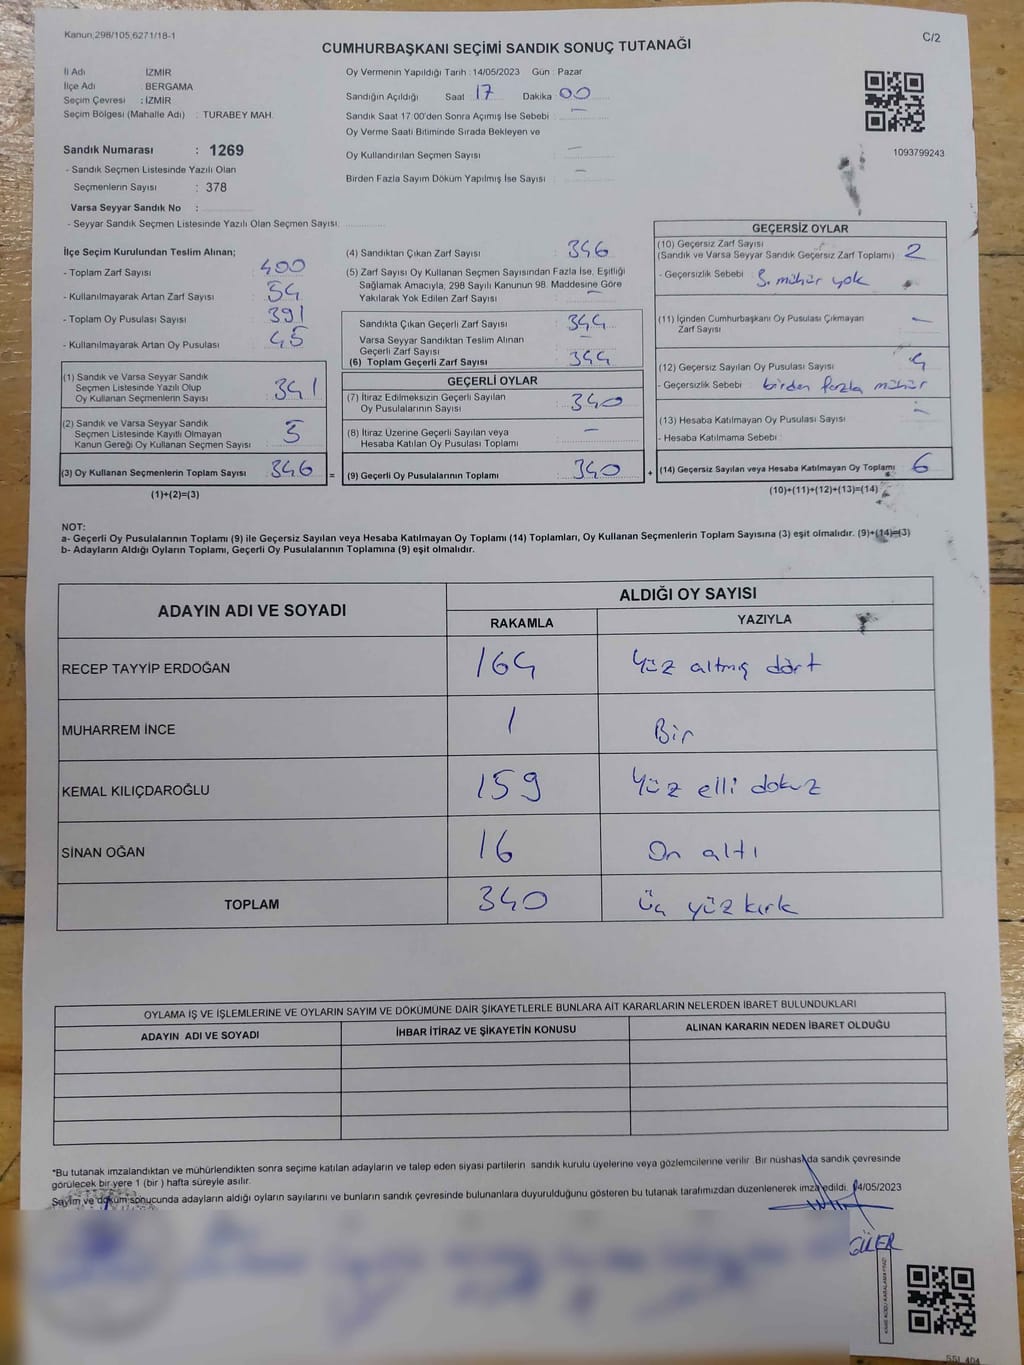 Kanun,298/105,6271/18-1
C/2
CUMHURBAŞKANI SEÇİMİ SANDIK SONUÇ TUTANAĞI
İl Adı : İZMİR
İlçe Adı : BERGAMA
Seçim Çevresi : İZMİR
Seçim Bölgesi (Mahalle Adı) : TURABEY MAH.
Sandık Numarası : 1269
- Sandık Seçmen Listesinde Yazılı Olan
Seçmenlerin Sayısı : 378
Varsa Seyyar Sandık No :
- Seyyar Sandık Seçmen Listesinde Yazılı Olan Seçmen Sayısı:
Oy Vermenin Yapıldığı Tarih : 14/05/2023 Gün : Pazar
Sandığın Açıldığı Saat 17 Dakika 00
Sandık Saat 17:00'den Sonra Açımış İse Sebebi : -
Oy Verme Saati Bitiminde Sırada Bekleyen ve
Oy Kullandırılan Seçmen Sayısı : -
Birden Fazla Sayım Döküm Yapılmış İse Sayısı : -
1093799243
İlçe Seçim Kurulundan Teslim Alınan;
- Toplam Zarf Sayısı : 400
- Kullanılmayarak Artan Zarf Sayısı : 54
- Toplam Oy Pusulası Sayısı : 391
- Kullanılmayarak Artan Oy Pusulası : 45
(1) Sandık ve Varsa Seyyar Sandık
Seçmen Listesinde Yazılı Olup
Oy Kullanan Seçmenlerin Sayısı : 341
(2) Sandık ve Varsa Seyyar Sandık
Seçmen Listesinde Kayıtlı Olmayan
Kanun Gereği Oy Kullanan Seçmen Sayısı : 5
(3) Oy Kullanan Seçmenlerin Toplam Sayısı : 346 =
(1)+(2)=(3)
(4) Sandıktan Çıkan Zarf Sayısı : 346
(5) Zarf Sayısı Oy Kullanan Seçmen Sayısından Fazla İse, Eşitliği
Sağlamak Amacıyla, 298 Sayılı Kanunun 98. Maddesine Göre
Yakılarak Yok Edilen Zarf Sayısı : -
Sandıkta Çıkan Geçerli Zarf Sayısı : 344
Varsa Seyyar Sandıktan Teslim Alınan
Geçerli Zarf Sayısı : -
(6) Toplam Geçerli Zarf Sayısı : 344
GEÇERLİ OYLAR
(7) İtiraz Edilmeksizin Geçerli Sayılan
Oy Pusulalarının Sayısı : 340
(8) İtiraz Üzerine Geçerli Sayılan veya
Hesaba Katılan Oy Pusulası Toplamı : -
(9) Geçerli Oy Pusulalarının Toplamı : 340 +
GEÇERSİZ OYLAR
(10) Geçersiz Zarf Sayısı
(Sandık ve Varsa Seyyar Sandık Geçersiz Zarf Toplamı) : 2
- Geçersizlik Sebebi : S. mühür yok
(11) İçinden Cumhurbaşkanı Oy Pusulası Çıkmayan
Zarf Sayısı : -
(12) Geçersiz Sayılan Oy Pusulası Sayısı : 4
- Geçersizlik Sebebi : birden fazla mühür
(13) Hesaba Katılmayan Oy Pusulası Sayısı : -
- Hesaba Katılmama Sebebi :
(14) Geçersiz Sayılan veya Hesaba Katılmayan Oy Toplamı : 6
(10)+(11)+(12)+(13)=(14)
NOT:
a- Geçerli Oy Pusulalarının Toplamı (9) ile Geçersiz Sayılan veya Hesaba Katılmayan Oy Toplamı (14) Toplamları, Oy Kullanan Seçmenlerin Toplam Sayısına (3) eşit olmalıdır. (9)+(14)=(3)
b- Adayların Aldığı Oyların Toplamı, Geçerli Oy Pusulalarının Toplamına (9) eşit olmalıdır.
ADAYIN ADI VE SOYADI
ALDIĞI OY SAYISI
RAKAMLA YAZIYLA
RECEP TAYYİP ERDOĞAN 164 Yüz altmış dört
MUHARREM İNCE 1 Bir
KEMAL KILIÇDAROĞLU 159 Yüz elli dokuz
SİNAN OĞAN 16 On altı
TOPLAM 340 Üç yüz kırk
OYLAMA İŞ VE İŞLEMLERİNE VE OYLARIN SAYIM VE DÖKÜMÜNE DAİR ŞİKAYETLERLE BUNLARA AİT KARARLARIN NELERDEN İBARET BULUNDUKLARI
ADAYIN ADI VE SOYADI İHBAR İTİRAZ VE ŞİKAYETİN KONUSU ALINAN KARARIN NEDEN İBARET OLDUĞU
*Bu tutanak imzalandıktan ve mühürlendikten sonra seçime katılan adayların ve talep eden siyasi partilerin sandık kurulu üyelerine veya gözlemcilerine verilir. Bir nüshası da sandık çevresinde
görülecek bir yere 1 (bir ) hafta süreyle asılır.
Sayım ve döküm sonucunda adayların aldığı oyların sayılarını ve bunların sandık çevresinde bulunanlara duyurulduğunu gösteren bu tutanak tarafımızdan düzenlenerek imza edildi. 14/05/2023
GÜLER